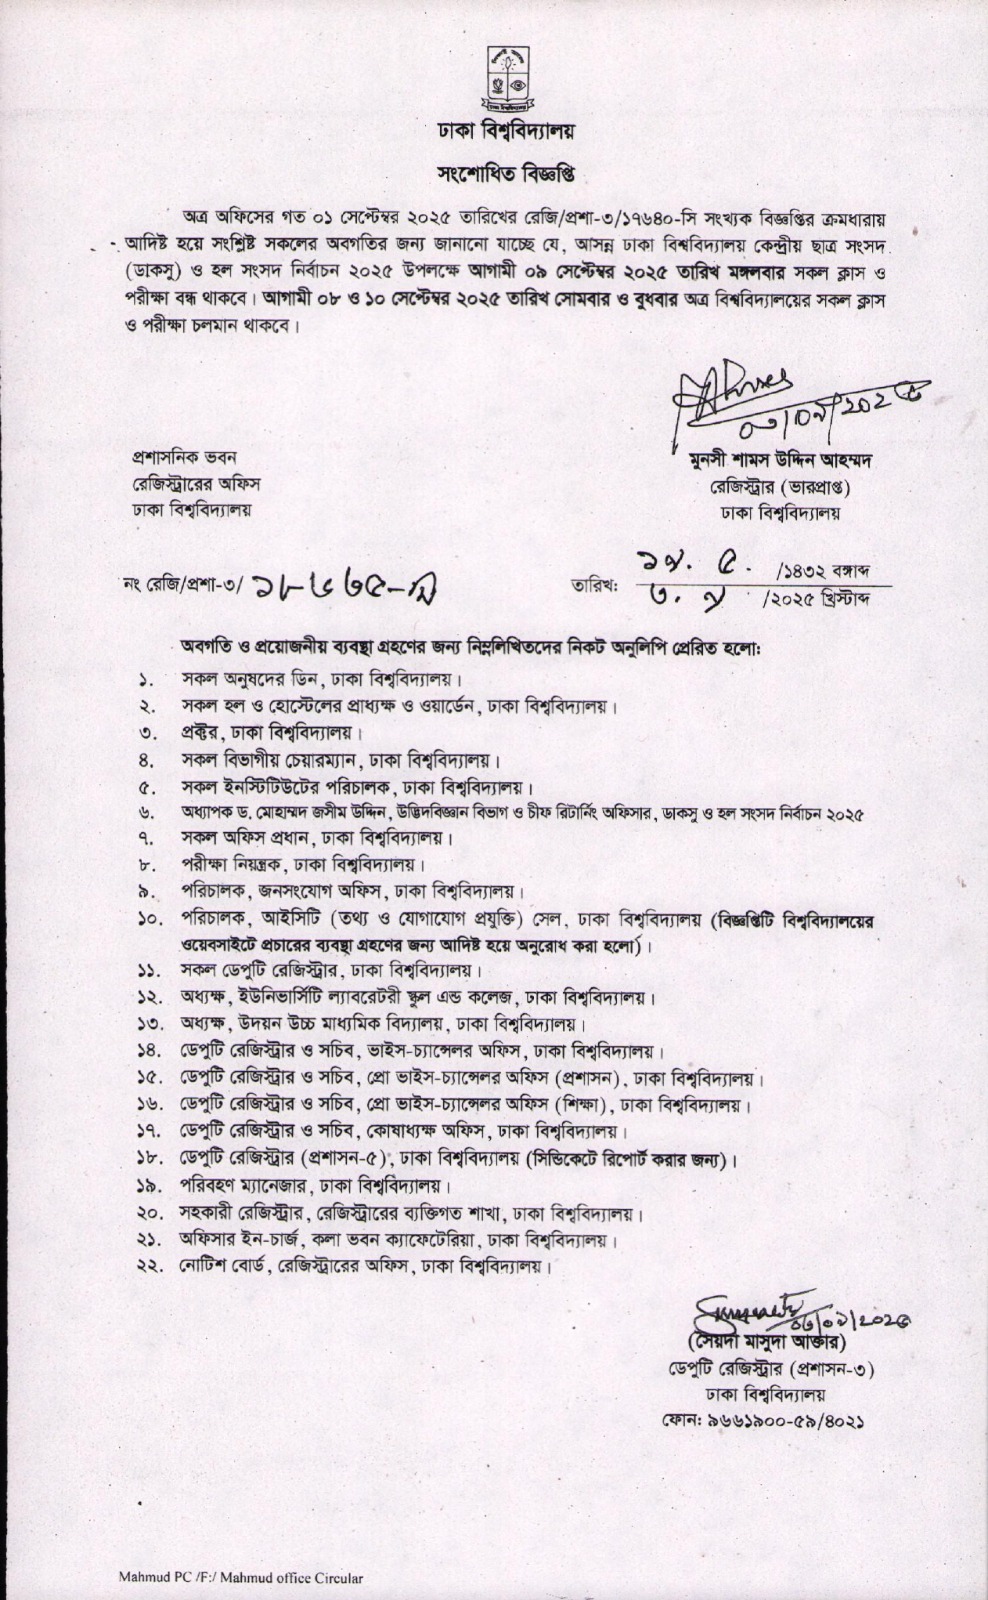 ঢাকা বিশ্ববিদ্যালয়
সংশোধিত বিজ্ঞপ্তি
অত্র অফিসের গত ০১ সেপ্টেম্বর ২০২৫ তারিখের রেজি/প্রশা-৩/১৭৬৪০-সি সংখ্যক বিজ্ঞপ্তির ক্রমধারায়
আদিষ্ট হয়ে সংশ্লিষ্ট সকলের অবগতির জন্য জানানো যাচ্ছে যে, আসন্ন ঢাকা বিশ্ববিদ্যালয় কেন্দ্রীয় ছাত্র সংসদ
(ডাকসু) ও হল সংসদ নির্বাচন ২০২৫ উপলক্ষে আগামী ০৯ সেপ্টেম্বর ২০২৫ তারিখ মঙ্গলবার সকল ক্লাস ও
পরীক্ষা বন্ধ থাকবে। আগামী ০৮ ও ১০ সেপ্টেম্বর ২০২৫ তারিখ সোমবার ও বুধবার অত্র বিশ্ববিদ্যালয়ের সকল ক্লাস
ও পরীক্ষা চলমান থাকবে।
০৩/০৯/২০২৫
প্রশাসনিক ভবন
রেজিস্ট্রারের অফিস
ঢাকা বিশ্ববিদ্যালয়
মুনসী শামস উদ্দিন আহম্মদ
রেজিস্ট্রার (ভারপ্রাপ্ত)
ঢাকা বিশ্ববিদ্যালয়
নং রেজি/প্রশা-৩/
তারিখ: ১৯. ৫. /১৪৩২ বঙ্গাব্দ
৩. ৯ /২০২৫ খ্রিস্টাব্দ
অবগতি ও প্রয়োজনীয় ব্যবস্থা গ্রহণের জন্য নিম্নলিখিতদের নিকট অনুলিপি প্রেরিত হলো:
১. সকল অনুষদের ডিন, ঢাকা বিশ্ববিদ্যালয়।
২. সকল হল ও হোস্টেলের প্রাধ্যক্ষ ও ওয়ার্ডেন, ঢাকা বিশ্ববিদ্যালয়।
৩. প্রক্টর, ঢাকা বিশ্ববিদ্যালয়।
৪. সকল বিভাগীয় চেয়ারম্যান, ঢাকা বিশ্ববিদ্যালয়।
৫. সকল ইনস্টিটিউটের পরিচালক, ঢাকা বিশ্ববিদ্যালয়।
৬. অধ্যাপক ড. মোহাম্মদ জসীম উদ্দিন, উদ্ভিদবিজ্ঞান বিভাগ ও চীফ রিটার্নিং অফিসার, ডাকসু ও হল সংসদ নির্বাচন ২০২৫
৭. সকল অফিস প্রধান, ঢাকা বিশ্ববিদ্যালয়।
৮. পরীক্ষা নিয়ন্ত্রক, ঢাকা বিশ্ববিদ্যালয়।
৯. পরিচালক, জনসংযোগ অফিস, ঢাকা বিশ্ববিদ্যালয়।
১০. পরিচালক, আইসিটি (তথ্য ও যোগাযোগ প্রযুক্তি) সেল, ঢাকা বিশ্ববিদ্যালয় (বিজ্ঞপ্তিটি বিশ্ববিদ্যালয়ের
ওয়েবসাইটে প্রচারের ব্যবস্থা গ্রহণের জন্য আদিষ্ট হয়ে অনুরোধ করা হলো)।
১১. সকল ডেপুটি রেজিস্ট্রার, ঢাকা বিশ্ববিদ্যালয়।
১২. অধ্যক্ষ, ইউনিভার্সিটি ল্যাবরেটরী স্কুল এন্ড কলেজ, ঢাকা বিশ্ববিদ্যালয়।
১৩. অধ্যক্ষ, উদয়ন উচ্চ মাধ্যমিক বিদ্যালয়, ঢাকা বিশ্ববিদ্যালয়।
১৪. ডেপুটি রেজিস্ট্রার ও সচিব, ভাইস-চ্যান্সেলর অফিস, ঢাকা বিশ্ববিদ্যালয়।
১৫. ডেপুটি রেজিস্ট্রার ও সচিব, প্রো ভাইস-চ্যান্সেলর অফিস (প্রশাসন), ঢাকা বিশ্ববিদ্যালয়।
১৬. ডেপুটি রেজিস্ট্রার ও সচিব, প্রো ভাইস-চ্যান্সেলর অফিস (শিক্ষা), ঢাকা বিশ্ববিদ্যালয়।
১৭. ডেপুটি রেজিস্ট্রার ও সচিব, কোষাধ্যক্ষ অফিস, ঢাকা বিশ্ববিদ্যালয়।
১৮. ডেপুটি রেজিস্ট্রার (প্রশাসন-৫), ঢাকা বিশ্ববিদ্যালয় (সিন্ডিকেটে রিপোর্ট করার জন্য)।
১৯. পরিবহণ ম্যানেজার, ঢাকা বিশ্ববিদ্যালয়।
২০. সহকারী রেজিস্ট্রার, রেজিস্ট্রারের ব্যক্তিগত শাখা, ঢাকা বিশ্ববিদ্যালয়।
২১. অফিসার ইন-চার্জ, কলা ভবন ক্যাফেটেরিয়া, ঢাকা বিশ্ববিদ্যালয়।
২২. নোটিশ বোর্ড, রেজিস্ট্রারের অফিস, ঢাকা বিশ্ববিদ্যালয়।
০৩/০৯/২০২৫
(সৈয়দা মাসুদা আক্তার)
ডেপুটি রেজিস্ট্রার (প্রশাসন-৩)
ঢাকা বিশ্ববিদ্যালয়
ফোন: ৯৬৬১৯০০-৫৯/৪০২১
Mahmud PC /F:/ Mahmud office Circular